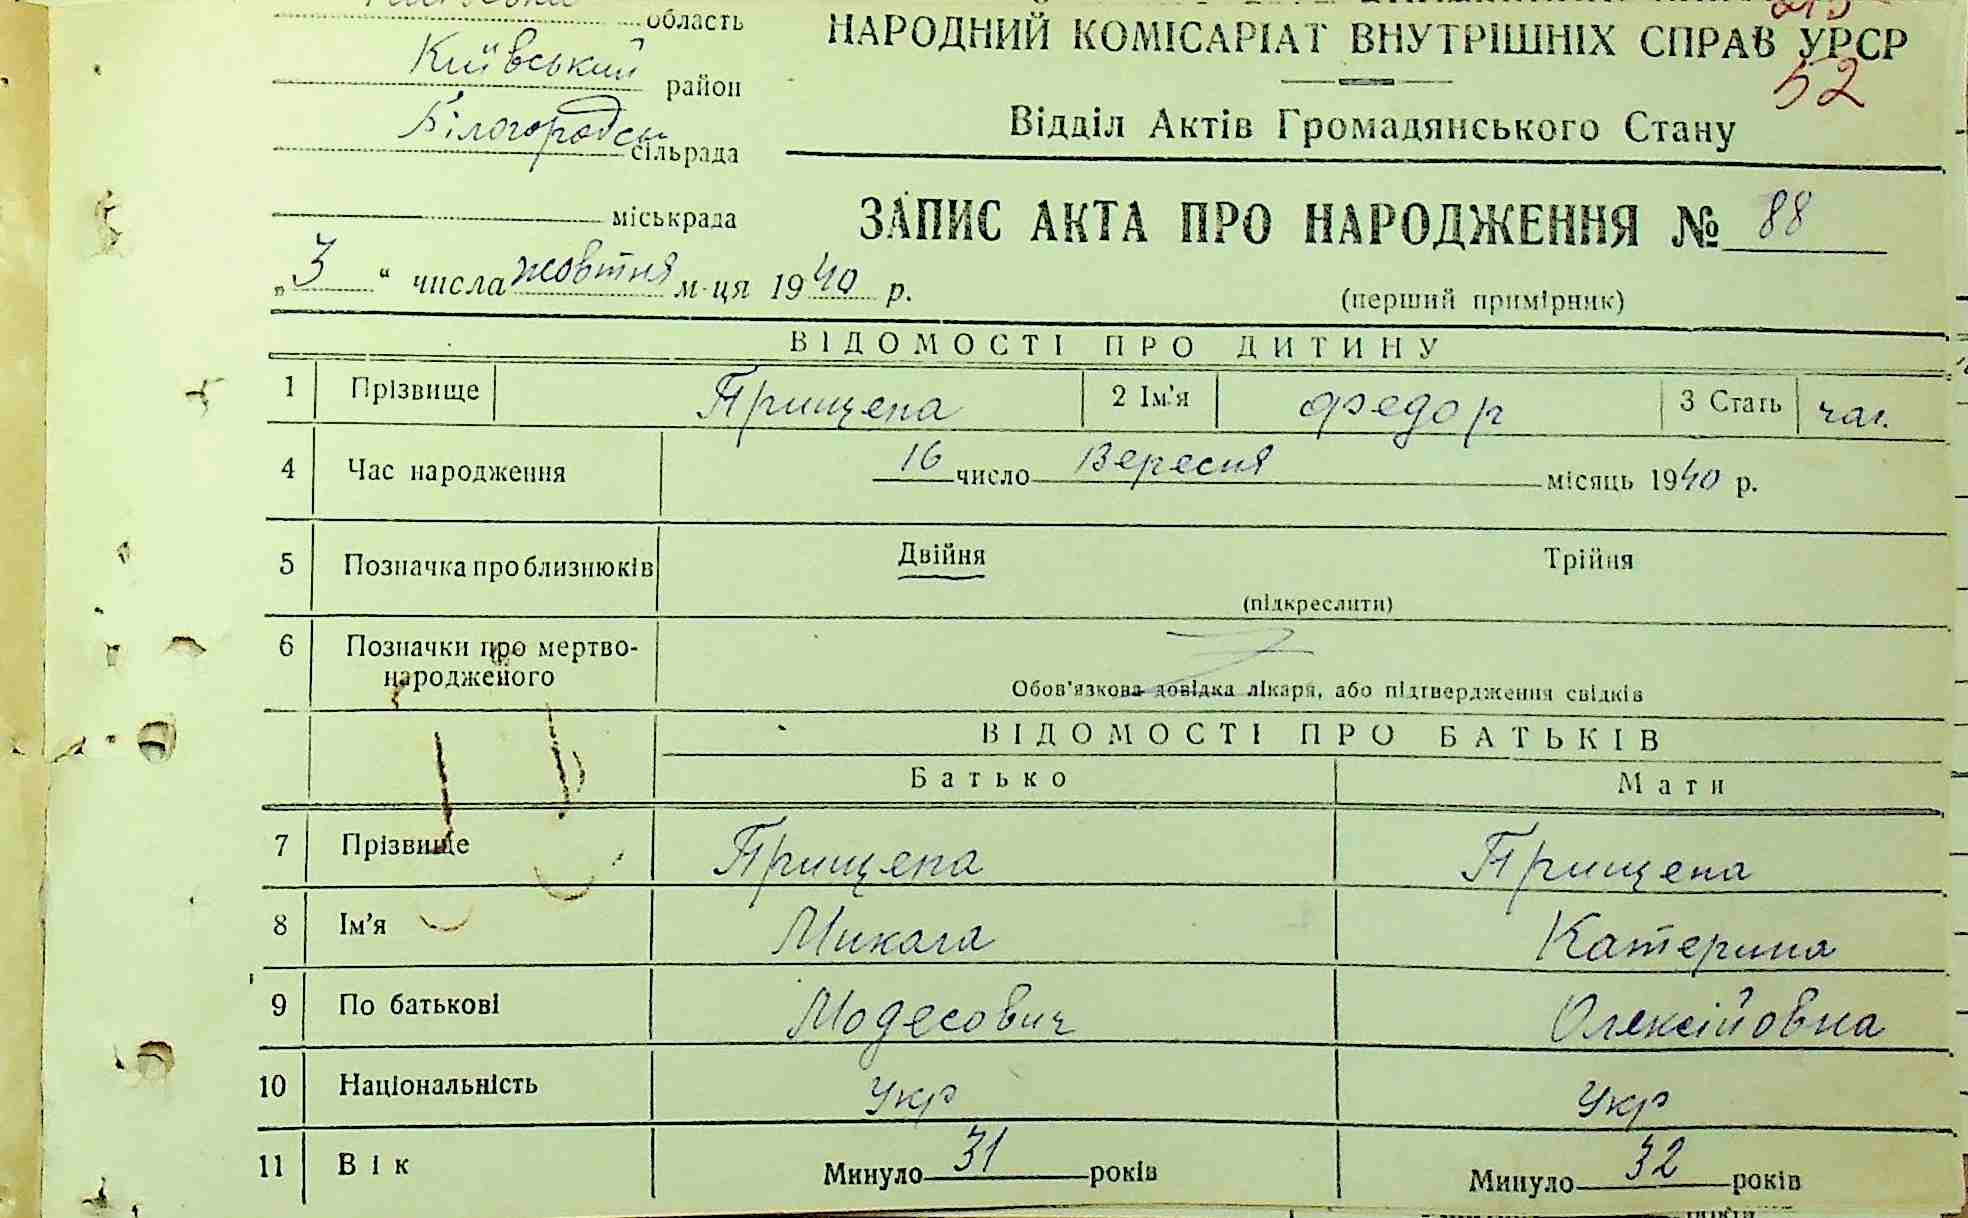 область
НАРОДНИЙ КОМІСАРІАТ ВНУТРІШНІХ СПРАВ УРСР
52
Київський район
Білогородськ сільрада
Відділ Актів Громадянського Стану
міськрада
ЗАПИС АКТА ПРО НАРОДЖЕННЯ № 88
„ 3 “ числа жовтня м-ця 1940 р.
(перший примірник)
ВІДОМОСТІ ПРО ДИТИНУ
1 Прізвище Прищепа 2 Ім'я Федор 3 Стать чол.
4 Час народження 16 число Вересня місяць 1940 р.
5 Позначка про близнюків Двійня Трійня
(підкреслити)
6 Позначки про мертво-
народженого
Обов'язкова довідка лікаря, або підтвердження свідків
ВІДОМОСТІ ПРО БАТЬКІВ
Батько Мати
7 Прізвище Прищепа Прищепа
8 Ім'я Микола Катерина
9 По батькові Модесович Олексійовна
10 Національність Укр Укр
11 Вік Минуло 31 років Минуло 32 років